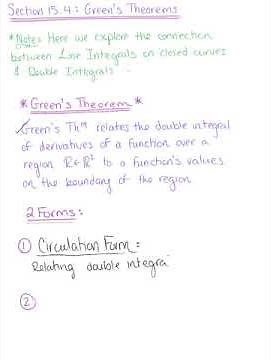 Section 15.4: Green's Theorems
*Note: Here we explore the connection
between Line Integrals on closed curves
& Double Integrals.
*Green's Theorem*
Green's Thm relates the double integral
of derivatives of a function over a
region R∈ℝ² to a function's values
on the boundary of the region
2 Forms:
① Circulation Form:
Relating double integra
②